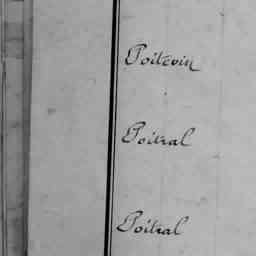 Poitevin
Poitral
Poitral